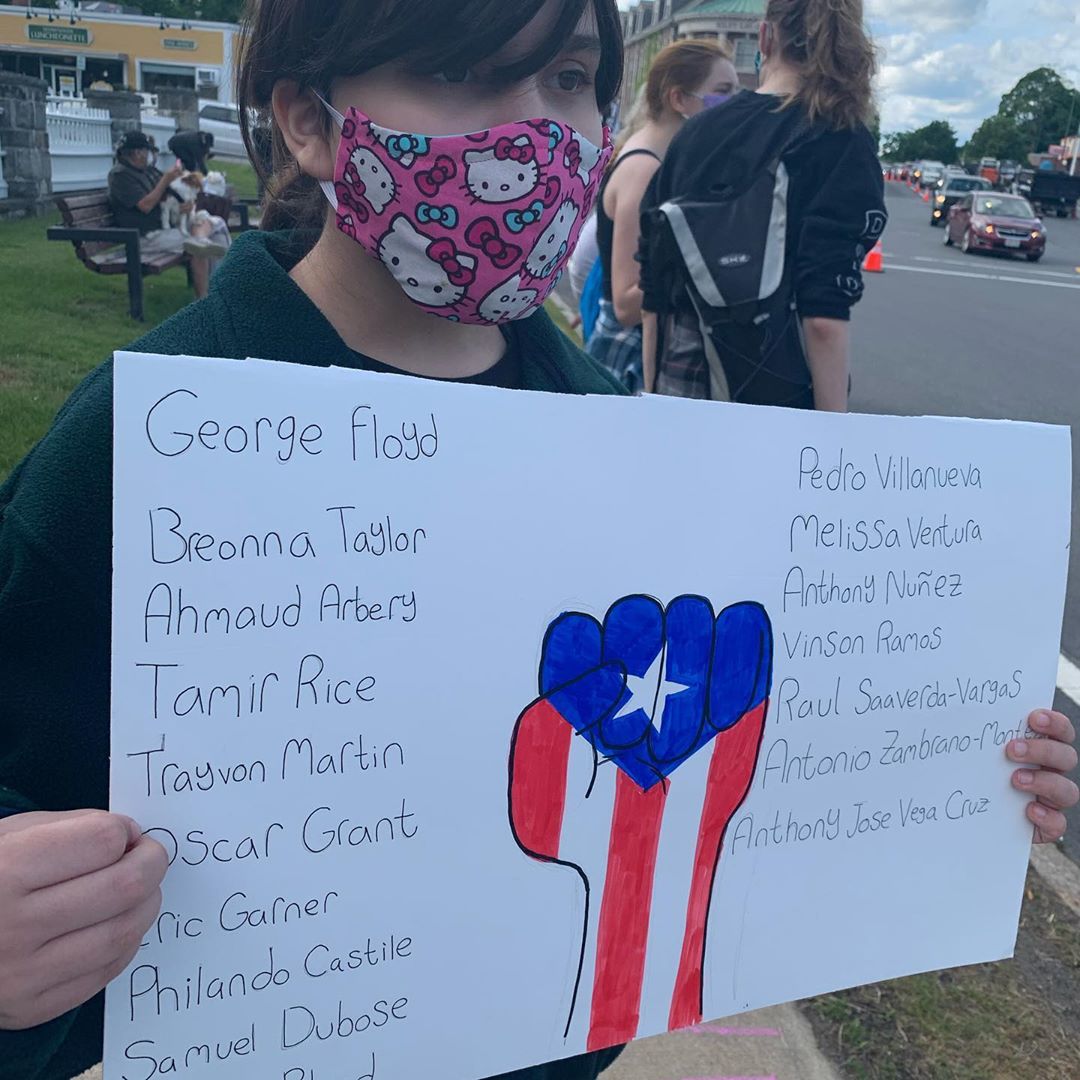 LUNCHEONETTE
George Floyd
Breonna Taylor
Ahmaud Arbery
Tamir Rice
Trayvon Martin
Oscar Grant
Eric Garner
Philando Castile
Samuel Dubose
Pedro Villanueva
Melissa Ventura
Anthony Nuñez
Vinson Ramos
Raul Saaverda-Vargas
Antonio Zambrano-Monte
Anthony Jose Vega Cruz